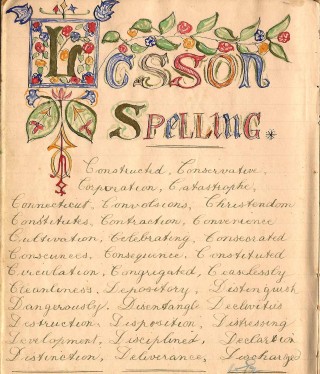 Lesson
Spelling.
Constructed, Conservative,
Corporation, Catastrophe,
Connecticut, Convulsions, Christendom
Constitutes, Contraction, Convenience
Cultivation, Celebrating, Consecrated
Consequence, Constituted
Circulation, Congregated, Ceaselessly
Cleanliness, Depository, Distinguish
Dangerously. Disentangle Declivities
Destruction, Disposition, Distressing
Development, Disciplined, Declaration
Distinction, Deliverance, Discharged